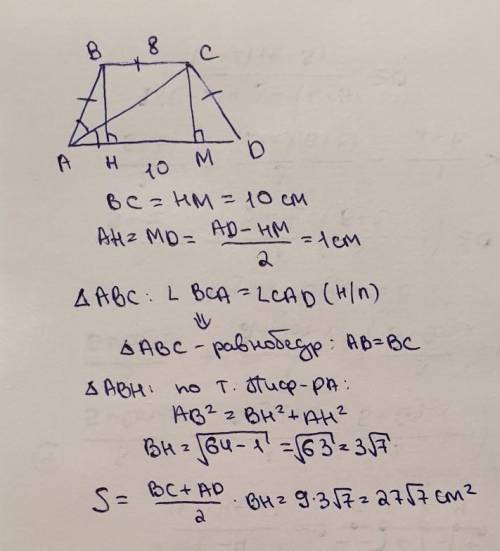 B 8 C
A H 10 M D
BC = HM = 10 см
AH = MD = \frac{AD - HM}{2} = 1 см
△ABC: ∟BCA = ∟CAD (н/л)
⇓
△ABC - равнобедр: AB = BC
△ABH: по т. Пиф-ра:
AB² = BH² + AH²
BH = √(64 - 1) = √63 = 3√7
S = \frac{BC + AD}{2} · BH = 9 · 3√7 = 27√7 см²